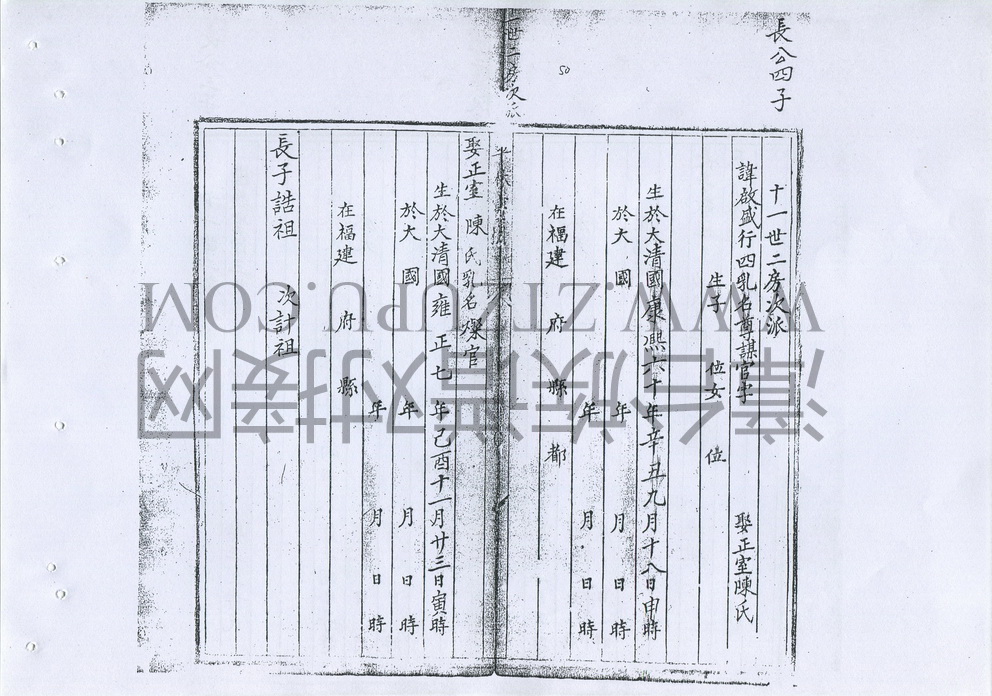 長公四子
十一世二房次派
諱啟盛行四乳名尊謀官字 娶正室陳氏
生子 位女 位
生於大清國康熙六十年辛丑九月十八日申時
於大 國 年 月 日 時
年 月 日 時
在福建 府 縣 都
50
世二房次派
娶正室 陳 氏乳名燦官
生於大清國雍正七年己酉十一月廿三日寅時
於大 國 年 月 日 時
年 月 日 時
在福建 府 縣
長子誥祖 次計祖
WWW.ZTZUPU.COM
漳台族谱对接网